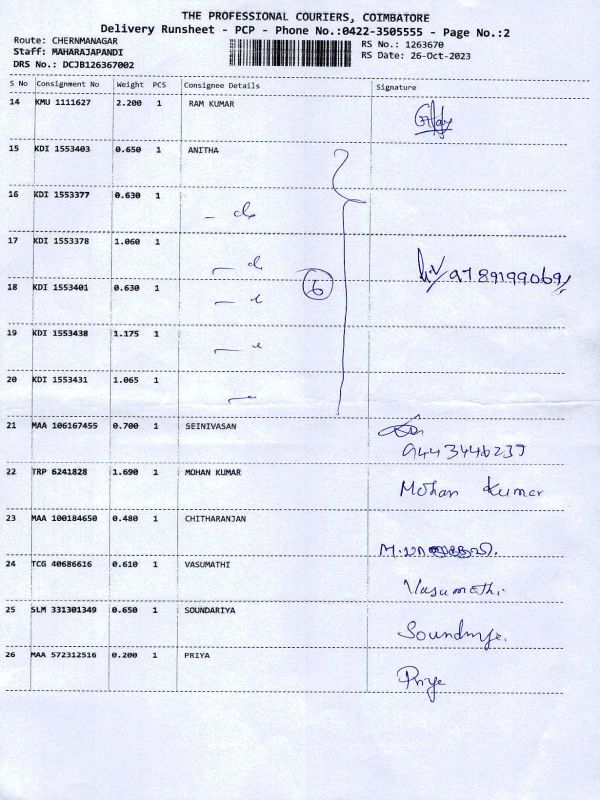 THE PROFESSIONAL COURIERS, COIMBATORE
Delivery Runsheet - PCP - Phone No.:0422-3505555 - Page No.:2
Route: CHERNMANAGAR
RS No.: 1263670
Staff: MAHARAJAPANDI
RS Date: 26-Oct-2023
DRS No.: DCJB126367002
S No Consignment No Weight PCS Consignee Details Signature
14 KMU 1111627 2.200 1 RAM KUMAR
15 KDI 1553403 0.650 1 ANITHA
16 KDI 1553377 0.630 1
17 KDI 1553378 1.060 1
6
9789199069
18 KDI 1553401 0.630 1
19 KDI 1553438 1.175 1
20 KDI 1553431 1.065 1
21 MAA 106167455 0.700 1 SEINIVASAN
9443446239
22 TRP 6241828 1.690 1 MOHAN KUMAR
Mohan Kumar
23 MAA 100184650 0.480 1 CHITHARANJAN
24 TCG 40686616 0.610 1 VASUMATHI
Vasumathi
25 SLM 331301349 0.650 1 SOUNDARIYA
26 MAA 572312516 0.200 1 PRIYA
Priya